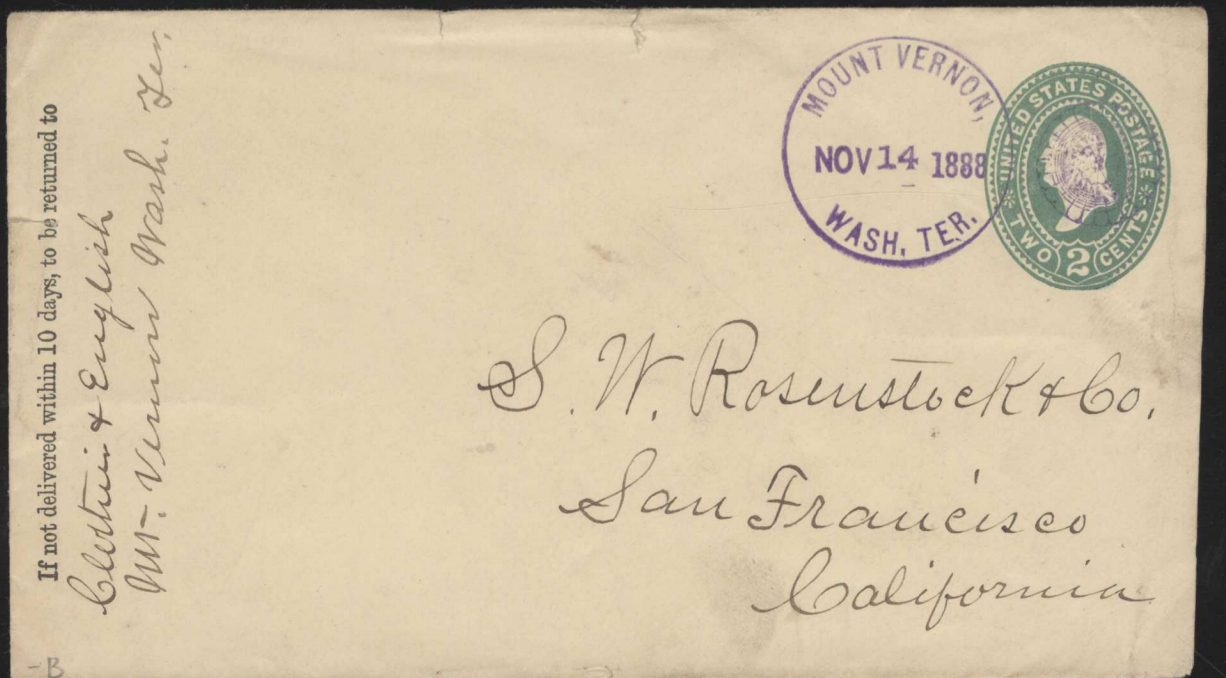 If not delivered within 10 days, to be returned to
& English
Mt. Vernon Wash. Ter.
MOUNT VERNON,
NOV 14 1888
WASH. TER.
UNITED STATES POSTAGE
TWO 2 CENTS
S. W. Rosenstock & Co.
San Francisco
California
-B